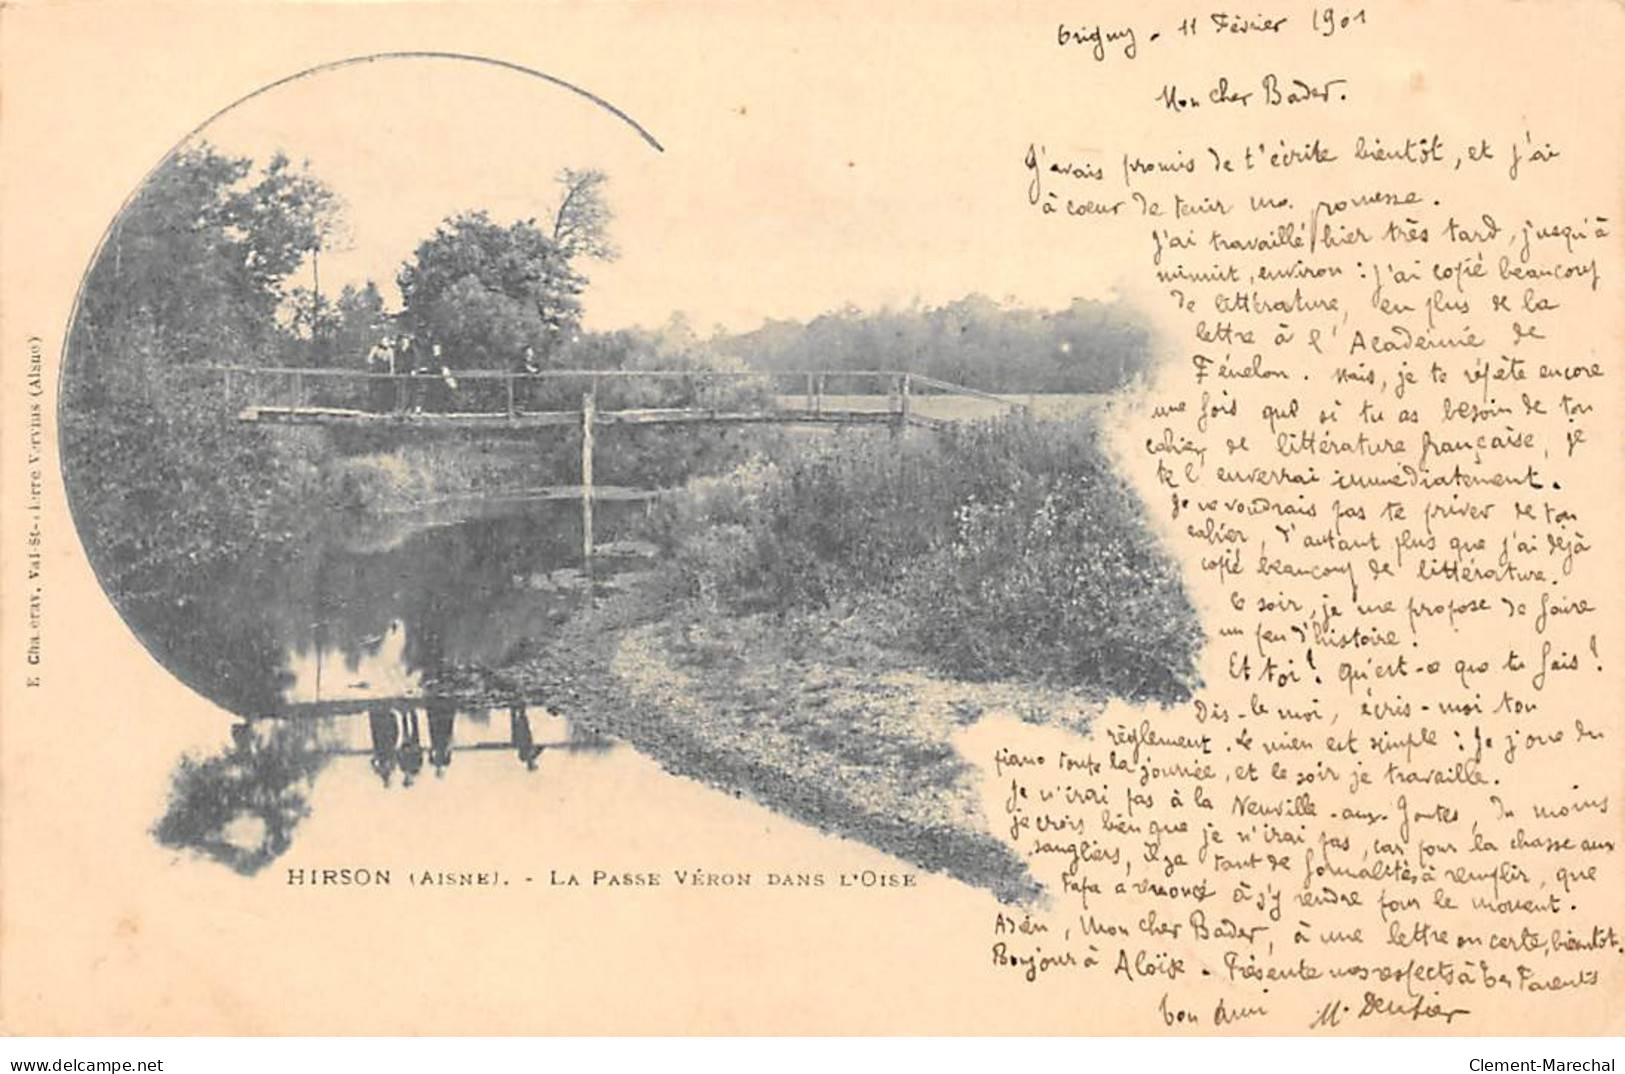 Origny - 11 Février 1901
Mon cher Bader.
J'avais promis de t'écrire bientôt, et j'ai
à coeur de tenir ma promesse.
J'ai travaillé hier très tard, jusqu'à
minuit, environ : j'ai copié beaucoup
de littérature, en plus de la
lettre à l'Académie de
Fénelon. Mais, je te répète encore
une fois que si tu as besoin de ton
cahier de littérature française, je
te l'enverrai immédiatement.
Je ne voudrais pas te priver de ton
cahier, d'autant plus que j'ai déjà
copié beaucoup de littérature.
Ce soir, je me propose de faire
un peu d'histoire !
Et toi ! Qu'est-ce que tu fais !
Dis-le moi, écris-moi ton
règlement. Le mien est simple : Je joue du
piano toute la journée, et le soir je travaille.
Je n'irai pas à la Neuville-aux-Joutes, du moins
je crois bien que je n'irai pas, car pour la chasse aux
sangliers, il y a tant de formalités à remplir, que
Papa a renoncé à s'y rendre pour le moment.
Adieu, Mon cher Bader, à une lettre ou carte, bientôt.
Bonjour à Aloïse - Présente mes respects à tes Parents
Ton Ami M.
HIRSON (AISNE). - LA PASSE VÉRON DANS L'OISE
Val-St-Pierre Vervins (Aisne)
delcampe.net
Clement-Marechal